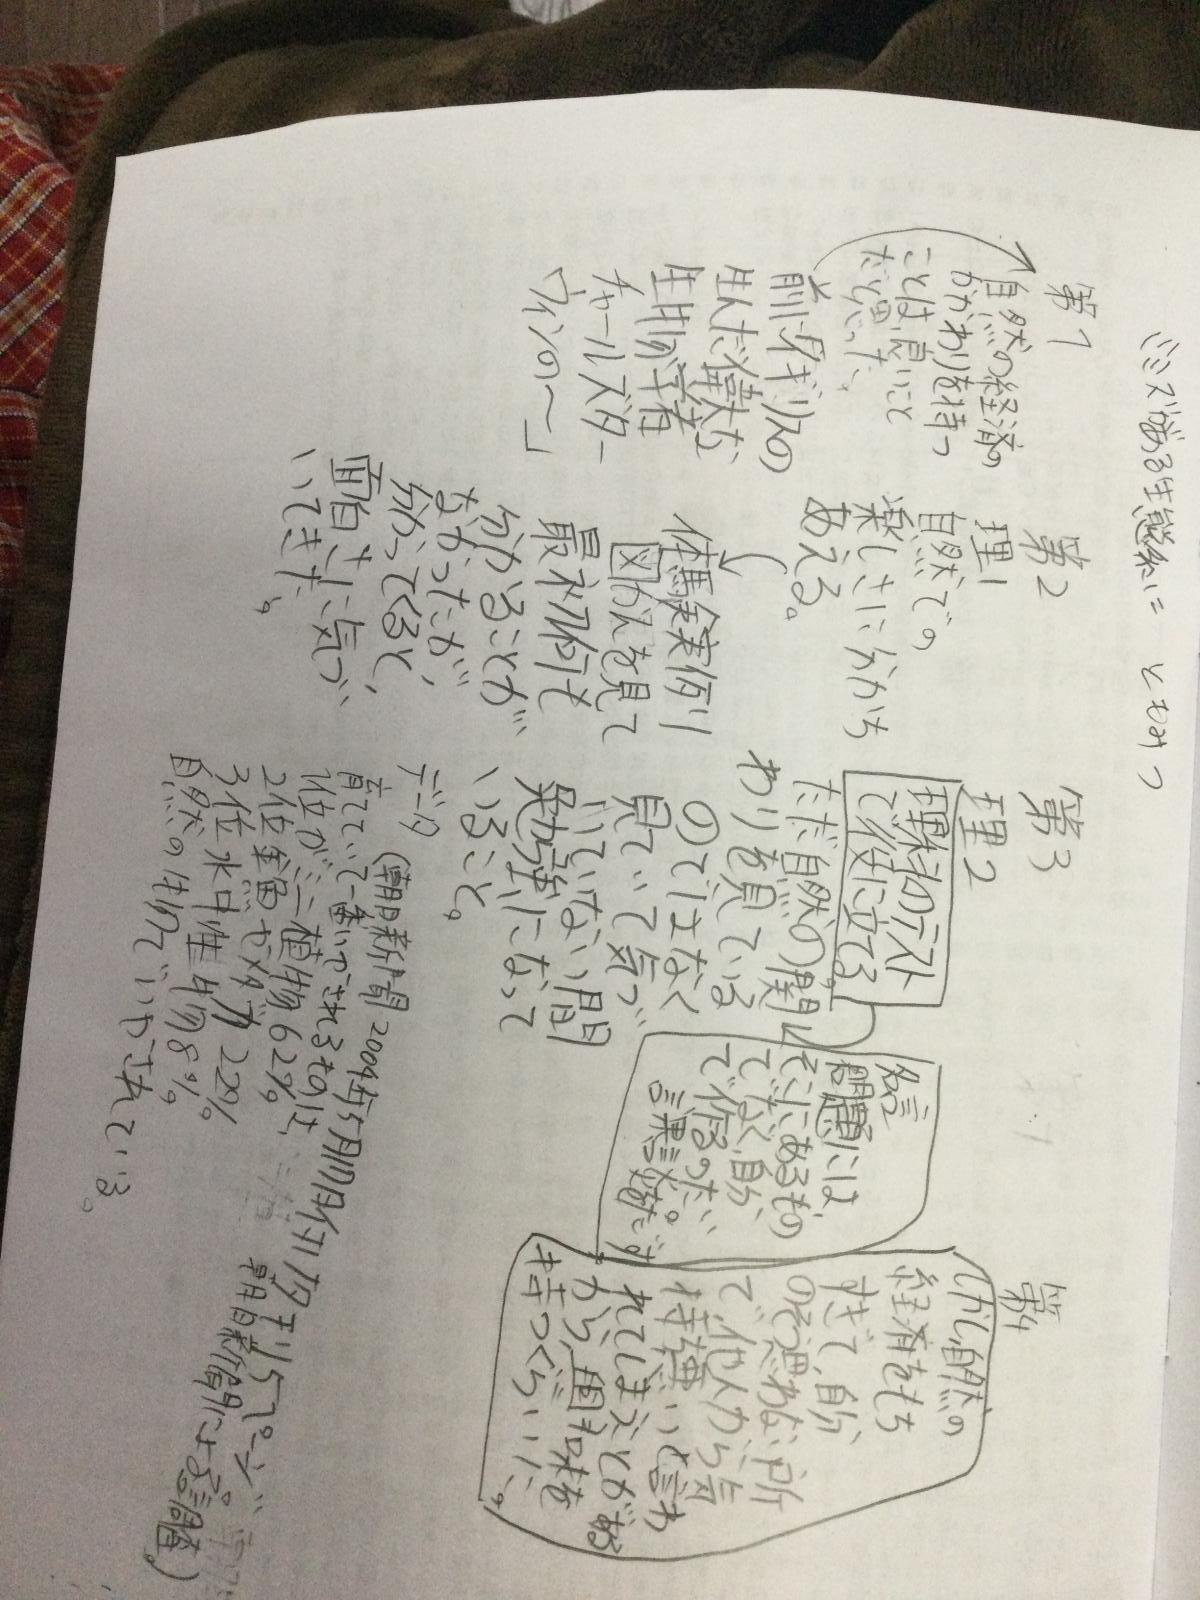 ミミズがいる生態系に ともみつ
第1
自然の経済の
かかわりを持つ
ことは、良いこと
だと思った。
前に「イギリスの
生んだ偉大な
生物学者
チャールズダー
ウィンの〜」
第2
理1
自然での
楽しさに分かち
あえる。
体馬実例
図かんを見て
最初何も
分かることが
なかったが、
分かってくると、
面白さに気づ
いてきた。
第3
理2
理科のテスト
で役に立てる。
ただ自然の関
わりを見ている
のではなく
見ていて気づ
いていない間
勉強になって
いること。
名言
問題には
そこにあるもの
でなく、自分
で作るのだ。
データ
(朝日新聞2004年5月
育てていて一番いやされるものは、
1位がミニ植物62%
2位金魚やメダカ22%
3位水中生物8%
自然の生物でいやされている。
朝日新聞による調査。)
第4
しかし自然の
経済をもち
すぎて、自分
のそう思わない所
で、他人から気
持ち悪いと言わ
れてしまうことがある
から、興味を
持つぐらいに。